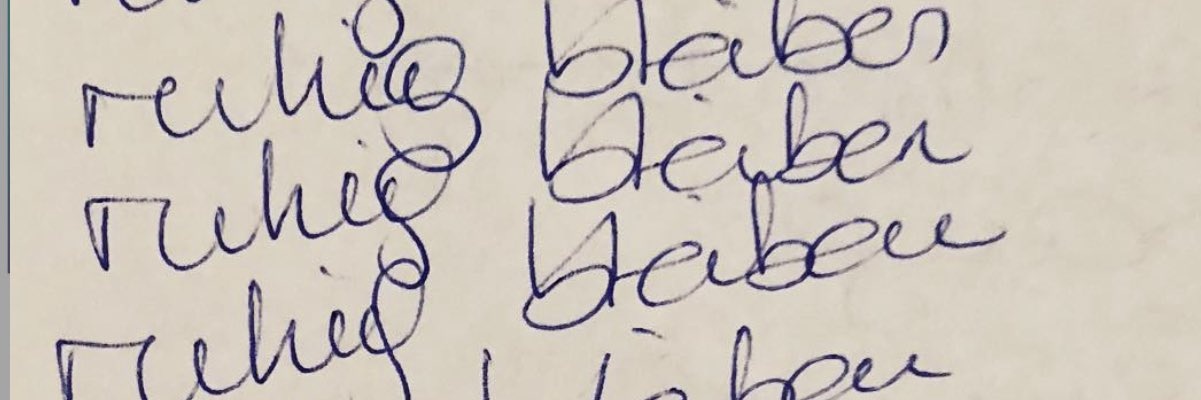 ruhig bleiben
ruhig bleiben
ruhig bleiben
ruhig bleiben